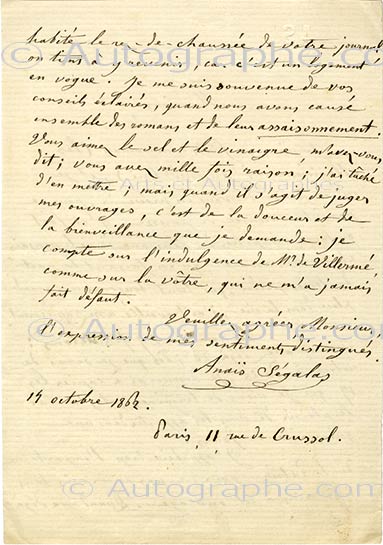 habite le rez-de-chaussée de votre journal
on tient à y revenir, car c'est un logement
en vogue. Je me suis souvenue de vos
conseils éclairés, quand nous avons causé
ensemble des romans et de leur assaisonnement.
Vous aimez le sel et le vinaigre, m'avez-vous
dit; vous avez mille fois raison; j'ai tâché
d'en mettre; mais quand il s'agit de juger
mes ouvrages, c'est de la douceur et de
la bienveillance que je demande: je
compte sur l'indulgence de Mr. de Villermé,
comme sur la vôtre, qui ne m'a jamais
fait défaut.
Veuillez agréer, Monsieur,
l'expression de mes sentiments distingués.
Anaïs Ségalas
14 octobre 1862.
Paris, 11 rue de Crussol.
© Autographe.com
Art et Autographe
© Autographe.com
© Autographe.com